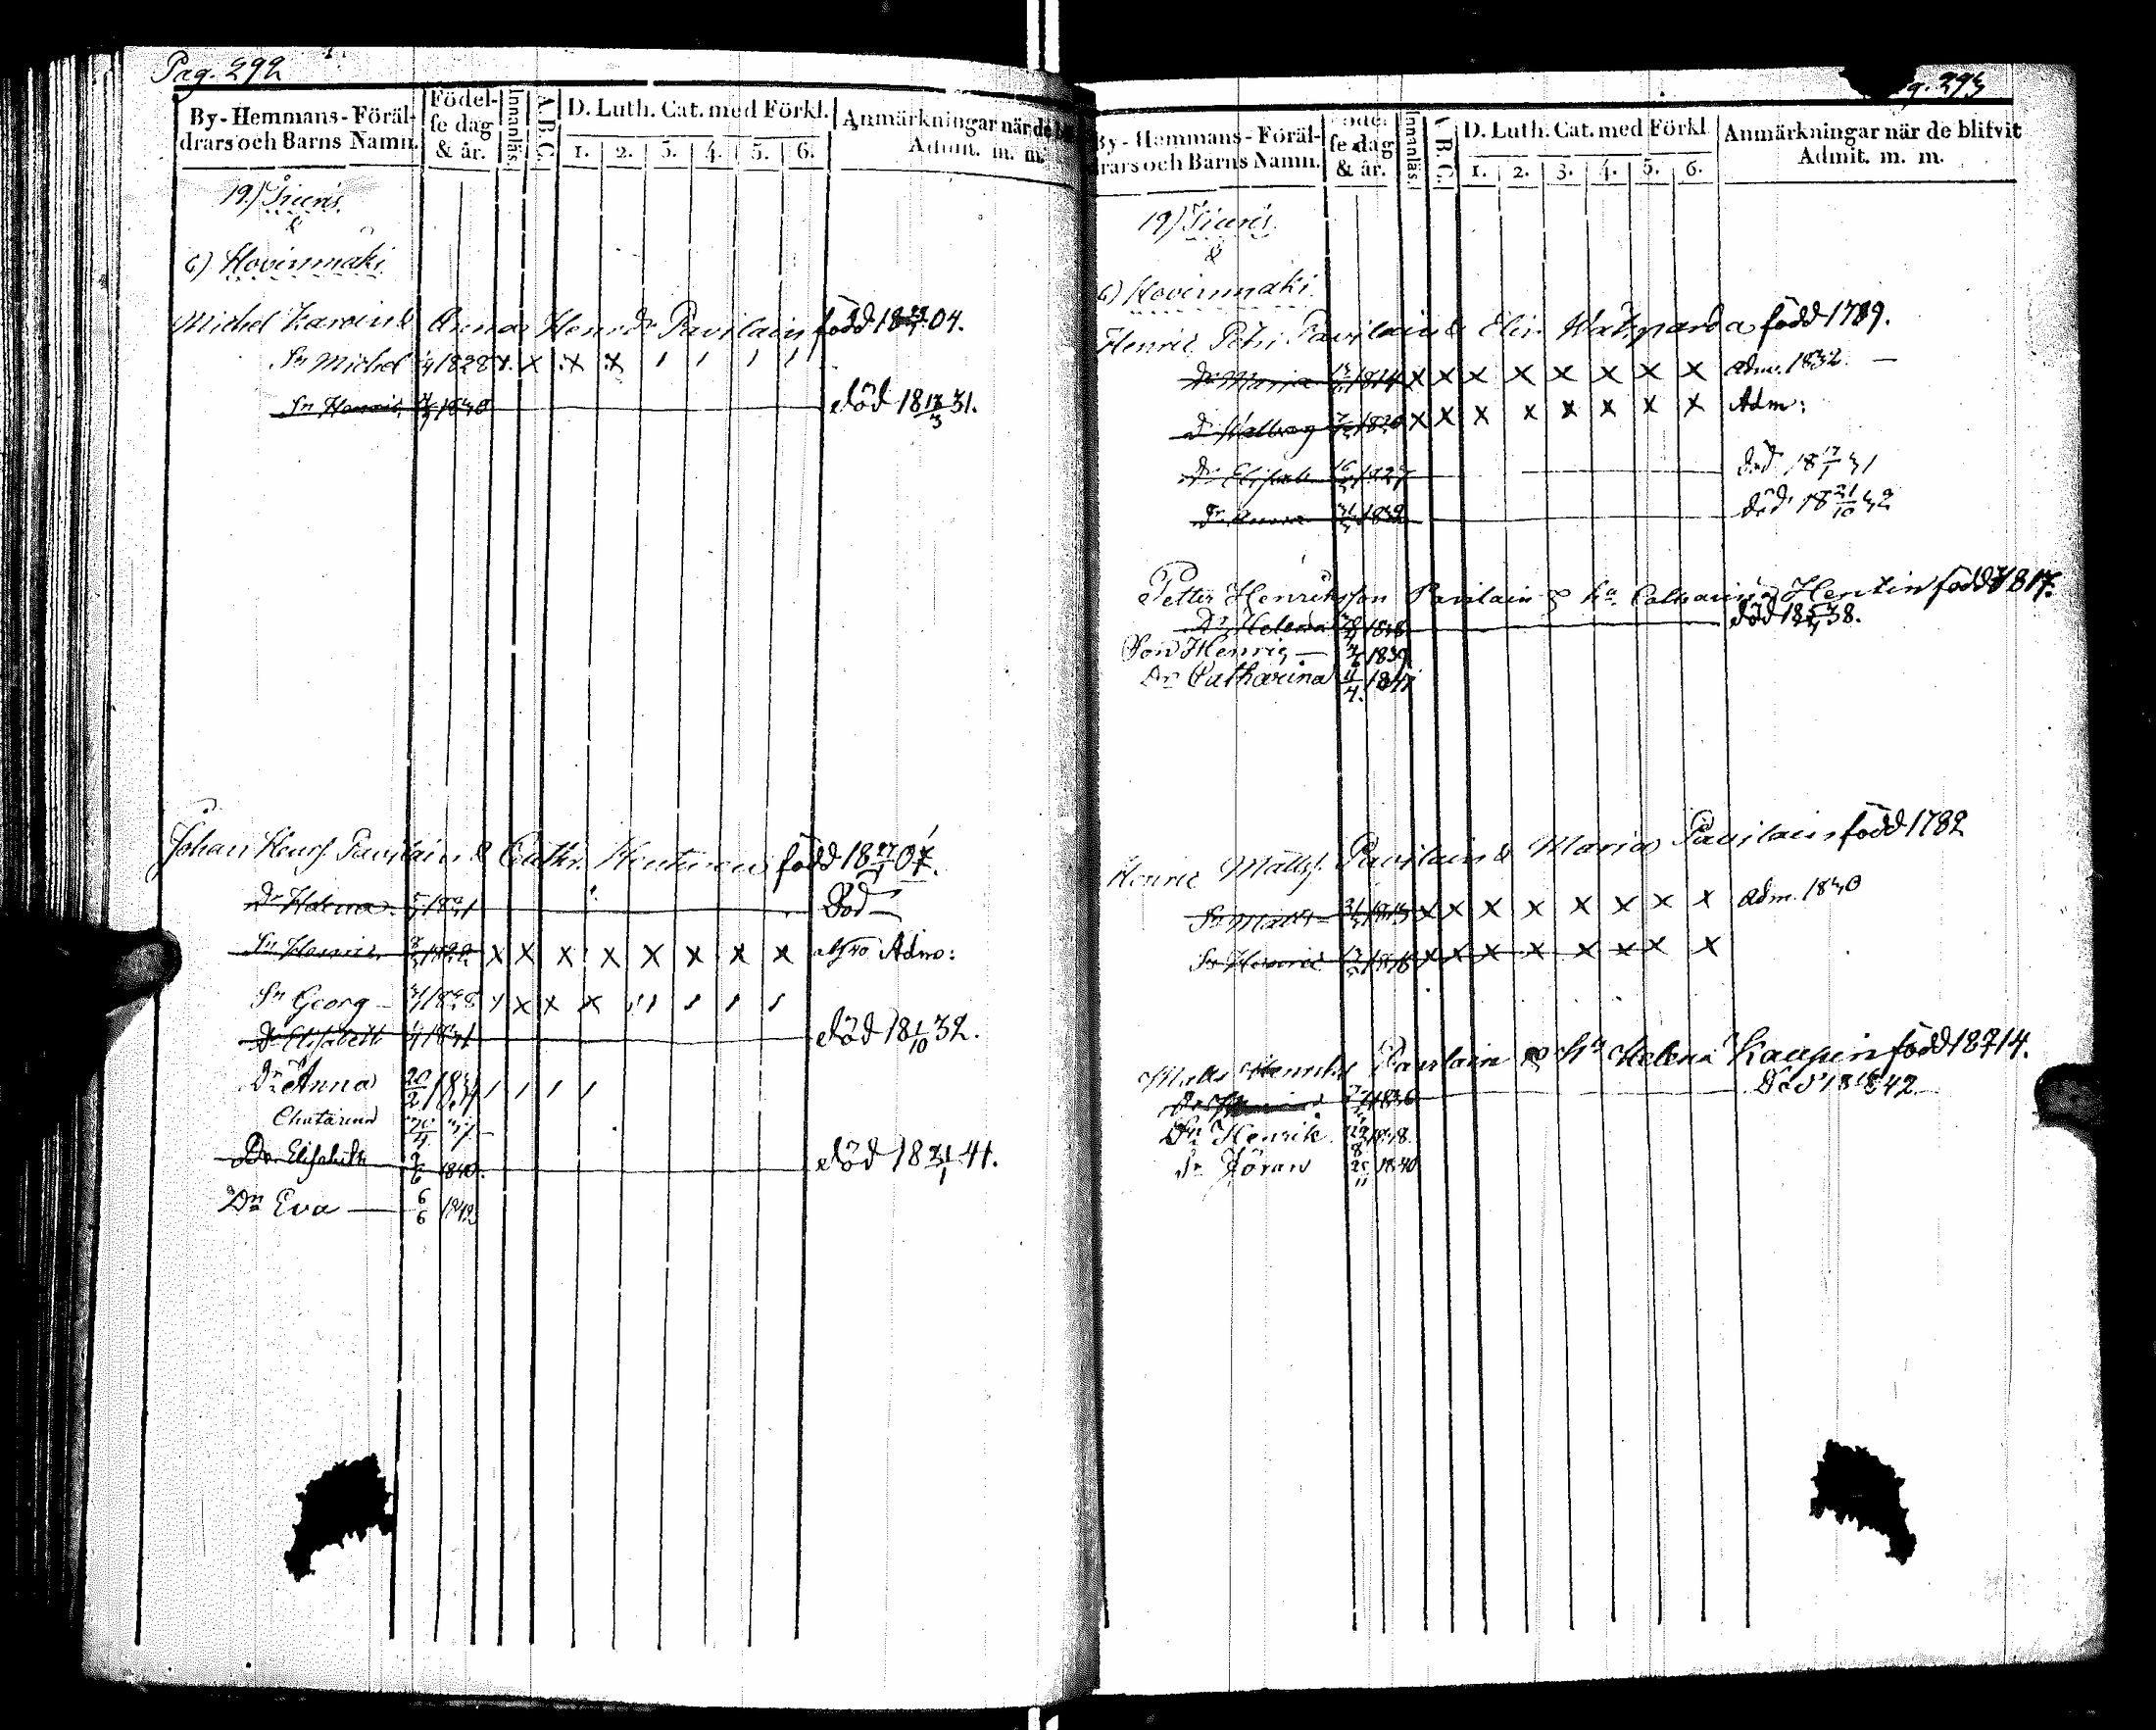 Pag. 292
By-Hemmans-Föräl-
drars och Barns Namn.
Födel-
se dag
& år.
Innanläs.
A.B.C.
D. Luth. Cat. med Förkl.
1. 2. 3. 4. 5. 6.
Anmärkningar när de bli
Admit. m. m.
19.)
&
6) Hovinmäki
Michel & Anna Henrdr Pavilain född 18 04.
Sn Michel 1828 x x x x
Sn Henric död 18 18/3 31.
Johan Henrs. Pavilain & Cathr. Hentinen född 18 27/1 07.
Dr Helena Död
Sn Henric x x x x x x x x Adm:
Sn Georg x x x
Dr Elisabeth 1831 död 18 1/10 32.
Dr Anna 20/2 1834
Chatarina 37
Dr Elisabeth 2/6 1840. död 18 21/1 41.
Dr Eva 6/6 1842
Pag. 293
By-Hemmans-Föräl-
drars och Barns Namn.
Födel-
se dag
& år.
Innanläs.
A.B.C.
D. Luth. Cat. med Förkl.
1. 2. 3. 4. 5. 6.
Anmärkningar när de blifvit
Admit. m. m.
19)
&
6) Hovinmaki
Henric Petri Pavilain & Elis. född 1789.
Dr Maria 1814 x x x x x x x x adm. 1832.
Dr Walborg 1820 x x x x x x x x Adm:
Dr Elisab. 1827 död 18 17/1 31
Dr Anna 1832 död 18 21/10 32
Petter Henriksson Pavilain & hu Catharina Hentin född 1817.
Dr Helena 1838 död 18 38.
Son Henric 1839
Dr Catharina 11/4 1841
Henric Matts. Pavilain & Maria Pavilain född 1782
Sn Matts 1813 x x x x x x x x adm. 1830
Sn Henric 1818 x x x x x x x x
Matts Henriks. Pavilain & hu Helena Kaupin född 18 14.
Död 18 42
Sn Henrik 29/8 1838.
Sn Jöran 25/11 1840